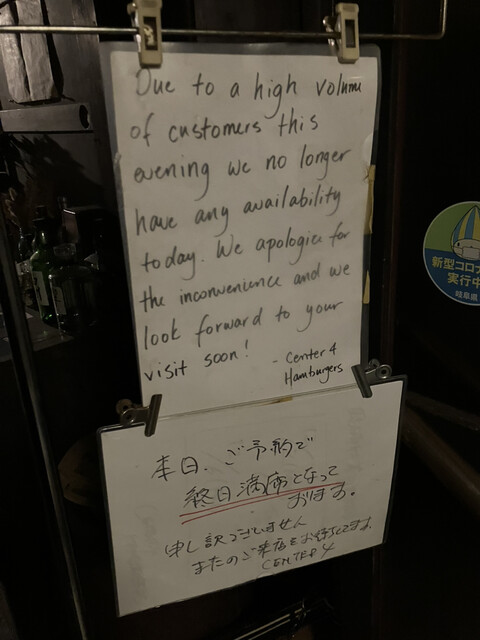 Due to a high volume
of customers this
evening we no longer
have any availability
today. We apologize for
the inconvenience and we
look forward to your
visit soon!
- Center 4
Hamburgers
本日、ご予約で
終日満席となって
おります。
申し訳ございません
またのご来店をお待ちしてます。
CENTER 4
新型コロナ
実行中
岐阜県